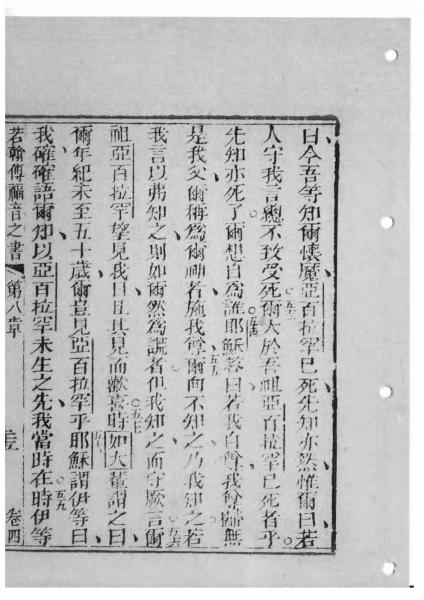 曰今吾等知爾懷魔亞百拉罕已死先知亦然惟爾曰若
人守我言總不致受死爾大於吾祖亞百拉罕已死者乎
先知亦死了爾想自為誰耶穌答曰若我自尊我尊歸無
是我父爾稱為爾神者施我尊爾尚不知之乃我知之若
我言以弗知之則如爾然為謊者但我知之而守厥言爾
祖亞百拉罕望見我日且其見而歡喜時如大輩謂之曰
爾年紀未至五十歲爾豈見亞百拉罕乎耶穌謂伊等曰
我確確語爾知以亞百拉罕未生之先我當時在時伊等
若翰傳福音之書 第八章 卷四